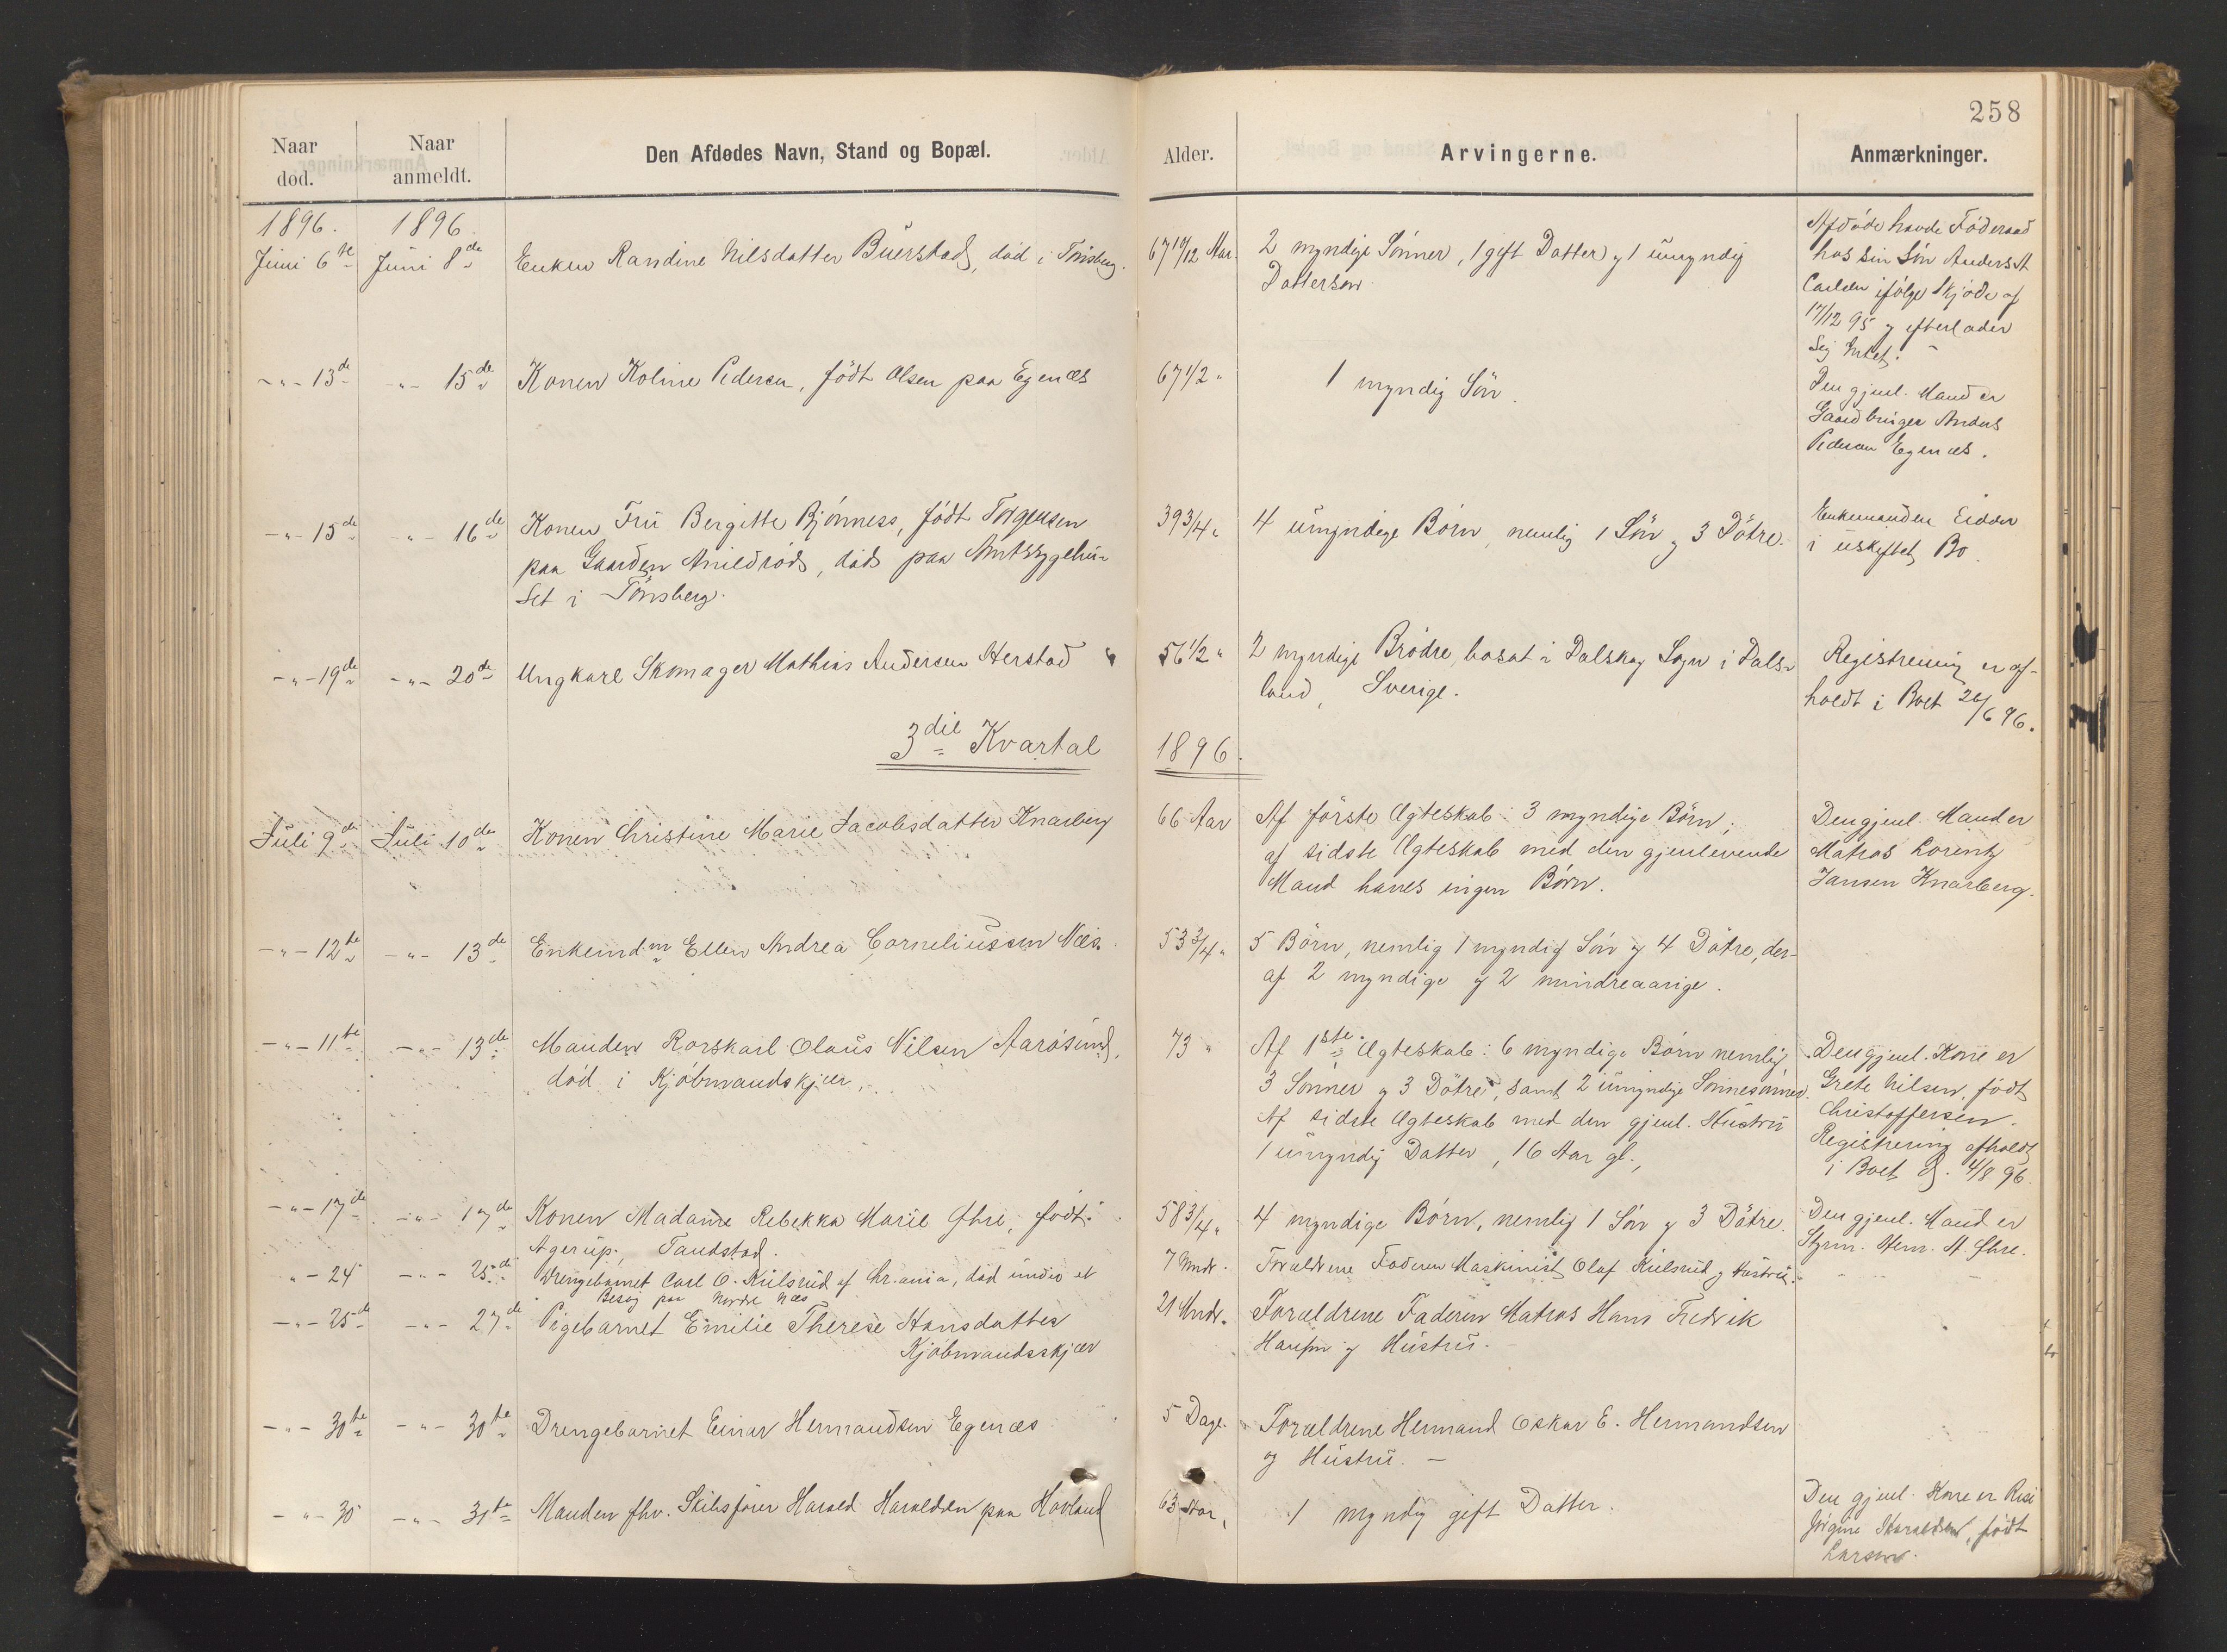 258
Naar død.
Naar anmeldt.
Den Afdødes Navn, Stand og Bopæl.
Alder.
Arvingerne.
Anmærkninger.
1896. 1896.
Juni 6te Juni 8de Enken Randine Nilsdatter Buerstad, död i Tönsberg. 67 10/12 Aar. 2 myndige Sönner, 1 gift Datter og 1 umyndig
Dattersøn.
Afdöde havde Föderaad
hos sin Sön Anders A
Carlsen ifölge Skjöde af
17/12 95 og efterlader
sig Intet. -
-"- 13de -"- 15de Konen Koline Pedersen, födt Olsen paa Egenæs 67 1/2 " 1 myndig Sön.
Den gjenl. Mand er
Gaardbruger Anders
Pedersen Egenæs.
-"- 15de -"- 16de Konen Fru Bergitte Bjönness, födt Torgersen
paa Gaarden Anildröd, död paa Amtssygehu-
set i Tönsberg.
39 3/4 " 4 umyndige Börn, nemlig 1 Sön og 3 Dötre.
Enkemanden sidder
i uskiftet Bo.
-"- 19de -"- 20de Ungkarl Skomager Mathias Andersen Herstad 56 1/2 " 2 myndige Brödre, bosat i Dalskog Sogn i Dals-
land, Sverige.
Registrering er af-
holdt i Boet 26/6 96.
3die Kvartal 1896.
Juli 9de Juli 10de Konen Christine Marie Jacobsdatter Knarberg 66 Aar Af förste Ægteskab: 3 myndige Börn;
af sidste Ægteskab med den gjenlevende
Mand haves ingen Börn.
Den gjenl. Mand er
Matros Lorentz
Jansen Knarberg.
-"- 12te -"- 13de Enkemdm Ellen Andrea Corneliussen Næs. 53 3/4 " 5 Börn, nemlig 1 myndig Sön og 4 Dötre, der-
af 2 myndige og 2 mindreaarige.
-"- 11te -"- 13de Manden Rorskarl Olaus Nilsen Aarösund,
död i Kjöbmandskjær.
73 " Af 1ste Ægteskab: 6 myndige Börn nemlig
3 Sönner og 3 Dötre, samt 2 umyndige Sönnesönner.
Af sidste Ægteskab med den gjenl. Hustru
1 umyndig Datter, 16 Aar gl.,
Den gjenl. Kone er
Grete Nilsen, födt
Christoffersen.
Registrering afholdt
i Boet d. 4/8 96.
-"- 17de -"- 17de Konen Madame Rebekka Marie Ihre, födt
Agerup, Tandstad.
58 3/4 " 4 myndige Börn, nemlig 1 Sön og 3 Dötre.
Den gjenl. Mand er
Styrm. Hem. A. Ihre.
"- 24 -"- 25de Drengebarnet Carl O. Kulsrud af Chr.ania, död under et
Besøg paa Nordre Næs
7 Mndr. Forældrene Faderen Maskinist Olaf Kulsrud og Hustru.
-"- 25de -"- 27de Pigebarnet Emilie Therese Hansdatter
Kjöbmandsskjær
21 Mndr. Forældrene Faderen Matros Hans Fredrik
Hansen og Hustru. -
-"- 30te -"- 30te Drengebarnet Einar Hermandsen Egenæs 5 Dage. Forældrene Hermand Oskar E. Hermandsen
og Hustru. -
-"- 30 -"- 31te Manden fhv. Skibsförer Harald Haraldsen paa Hovland 63 Aar, 1 myndig gift Datter.
Den gjenl. Kone er
Jörgine Haraldsen, födt
Larsen.